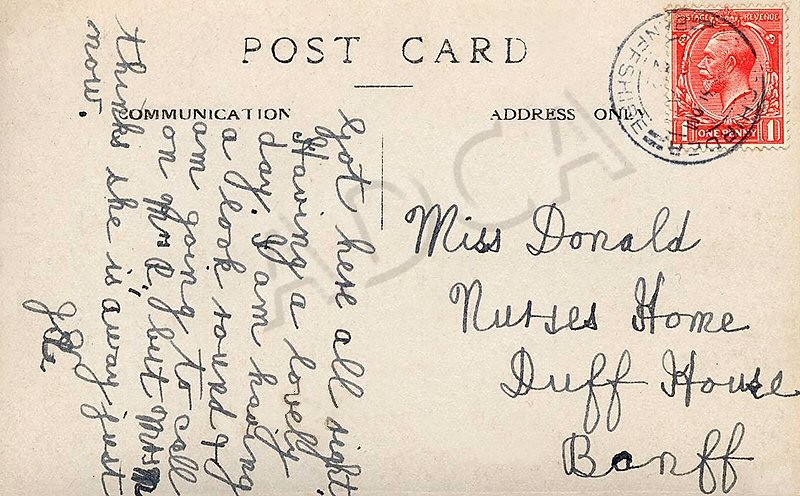 POST CARD
COMMUNICATION
ADDRESS ONLY
POSTAGE REVENUE
ONE PENNY
1 1
BANFFSHIRE
Got here all right.
Having a lovely
day. I am having
a look round &
am going to call
on Mrs R, but Mrs M
thinks she is away just
now.
Miss Donald
Nurses Home
Duff House
Banff
ADCA